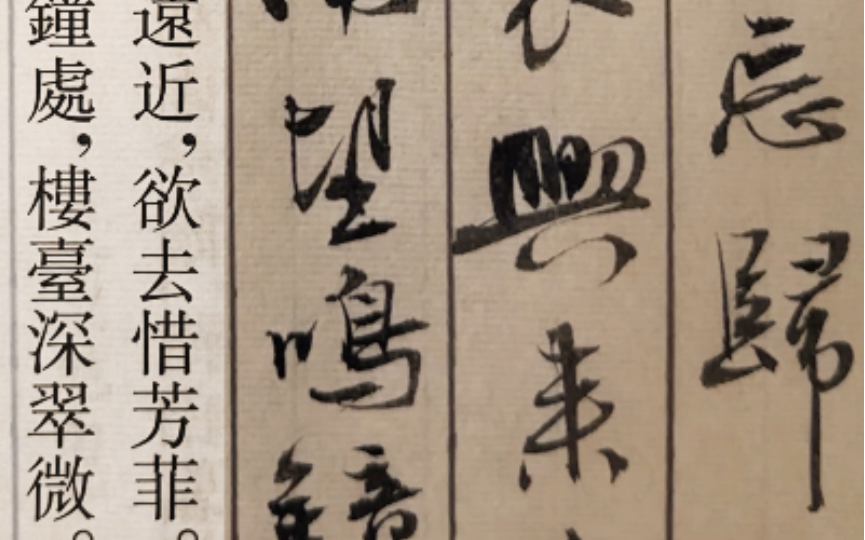 忘歸
衣興來
望鳴鐘
遠近,欲去惜芳菲。
鐘處,樓臺深翠微。